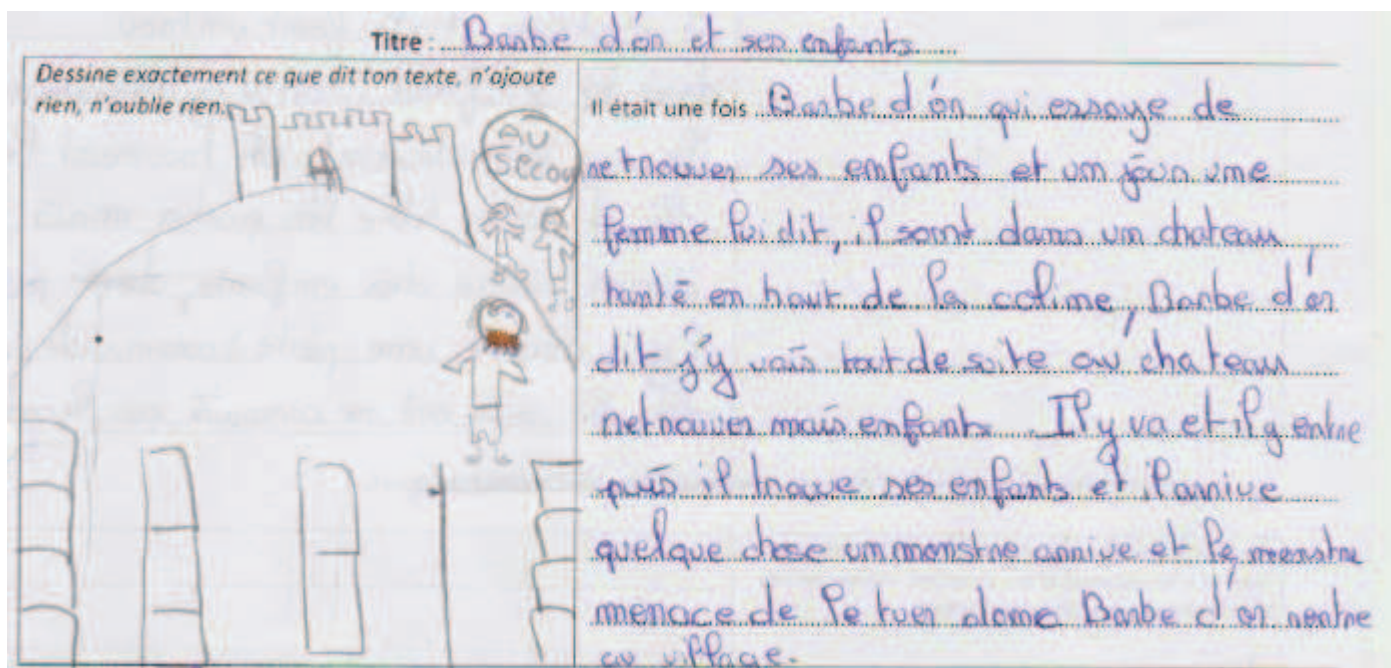 Titre : Barbe d'or et ses enfants
Dessine exactement ce que dit ton texte, n'ajoute
rien, n'oublie rien.
AU
SECOURS
Il était une fois Barbe d'or qui essaye de
retrouver ses enfants et un jour une
femme lui dit, il sont dans un chateau
hanté en haut de la coline, Barbe d'or
dit j'y vais tout de suite au chateau
retrouver mais enfants. Il y va et il y entre
puis il trouve ses enfants et il arrive
quelque chose un monstre arrive et le monstre
menace de le tuer alors Barbe d'or rentre
au village.